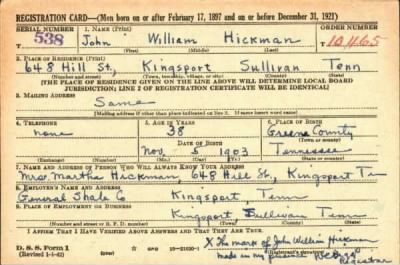 REGISTRATION CARD—(Men born on or after February 17, 1897 and on or before December 31, 1921)
SERIAL NUMBER 1. NAME (Print) ORDER NUMBER
T 538 John William Hickman T 10,465
(First) (Middle) (Last)
2. PLACE OF RESIDENCE (Print)
648 Hill St., Kingsport Sullivan Tenn
(Number and street) (Town, township, village, or city) (County) (State)
[THE PLACE OF RESIDENCE GIVEN ON THE LINE ABOVE WILL DETERMINE LOCAL BOARD
JURISDICTION; LINE 2 OF REGISTRATION CERTIFICATE WILL BE IDENTICAL]
3. MAILING ADDRESS
Same
[Mailing address if other than place indicated on line 2. If same insert word same]
4. TELEPHONE 5. AGE IN YEARS 6. PLACE OF BIRTH
none 38 Greene County
DATE OF BIRTH (Town or county)
Nov. 5 1903 Tennessee
(Exchange) (Number) (Mo.) (Day) (Yr.) (State or country)
7. NAME AND ADDRESS OF PERSON WHO WILL ALWAYS KNOW YOUR ADDRESS
Mrs. Martha Hickman, 648 Hill St., Kingsport Tenn
8. EMPLOYER'S NAME AND ADDRESS
General Shale Co Kingsport, Tenn
9. PLACE OF EMPLOYMENT OR BUSINESS
Kingsport Sullivan Tenn
(Number and street or R. F. D. number) (Town) (County) (State)
I AFFIRM THAT I HAVE VERIFIED ABOVE ANSWERS AND THAT THEY ARE TRUE.
D. S. S. Form 1 X The mark of John William Hickman
(Revised 1-1-42) made in my presence
Registrar